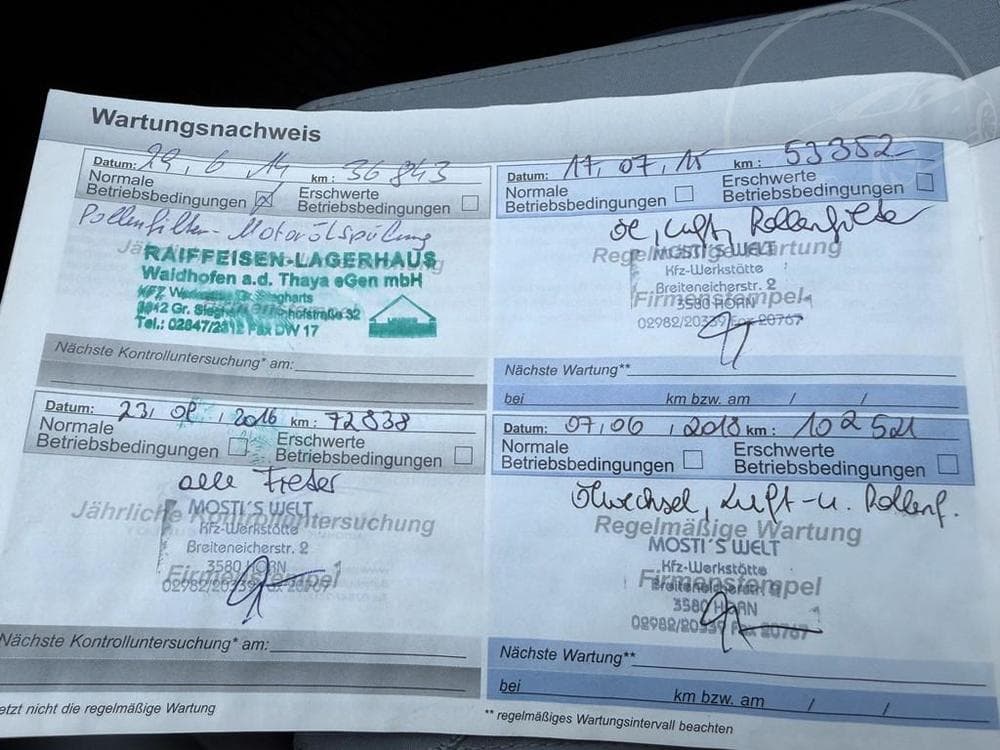 Wartungsnachweis
Datum: 29, 6, 14 km: 36843
Normale Betriebsbedingungen
Erschwerte Betriebsbedingungen
Pollenfilter - Motorölspülung
RAIFFEISEN-LAGERHAUS
Waidhofen a.d. Thaya eGen mbH
Tel.: 02847/ Fax DW 17
Nächste Kontrolluntersuchung* am:
Datum: 17, 07, 15 km: 53352
Normale Betriebsbedingungen
Erschwerte Betriebsbedingungen
Öl, Luft, Pollenfilter
Regelmäßige Wartung
MOSTI'S WELT
Kfz-Werkstätte
Breiteneicherstr. 2
Firmenstempel
3580 HORN
02982/20339 Fax 20767
Nächste Wartung**
bei km bzw. am / /
Datum: 23, 08, 2016 km: 72838
Normale Betriebsbedingungen
Erschwerte Betriebsbedingungen
alle Fileter
Jährliche Kontrolluntersuchung
MOSTI'S WELT
Kfz-Werkstätte
Breiteneicherstr. 2
3580 HORN
Firmenstempel
02982/20339 Fax 20767
Nächste Kontrolluntersuchung* am:
Datum: 07, 06, 2018 km: 102521
Normale Betriebsbedingungen
Erschwerte Betriebsbedingungen
Ölwechsel, Luft- u. Pollenf.
Regelmäßige Wartung
MOSTI'S WELT
Kfz-Werkstätte
Firmenstempel
3580 HORN
02982/20339 Fax 20767
Nächste Wartung**
bei km bzw. am / /
etzt nicht die regelmäßige Wartung
** regelmäßiges Wartungsintervall beachten